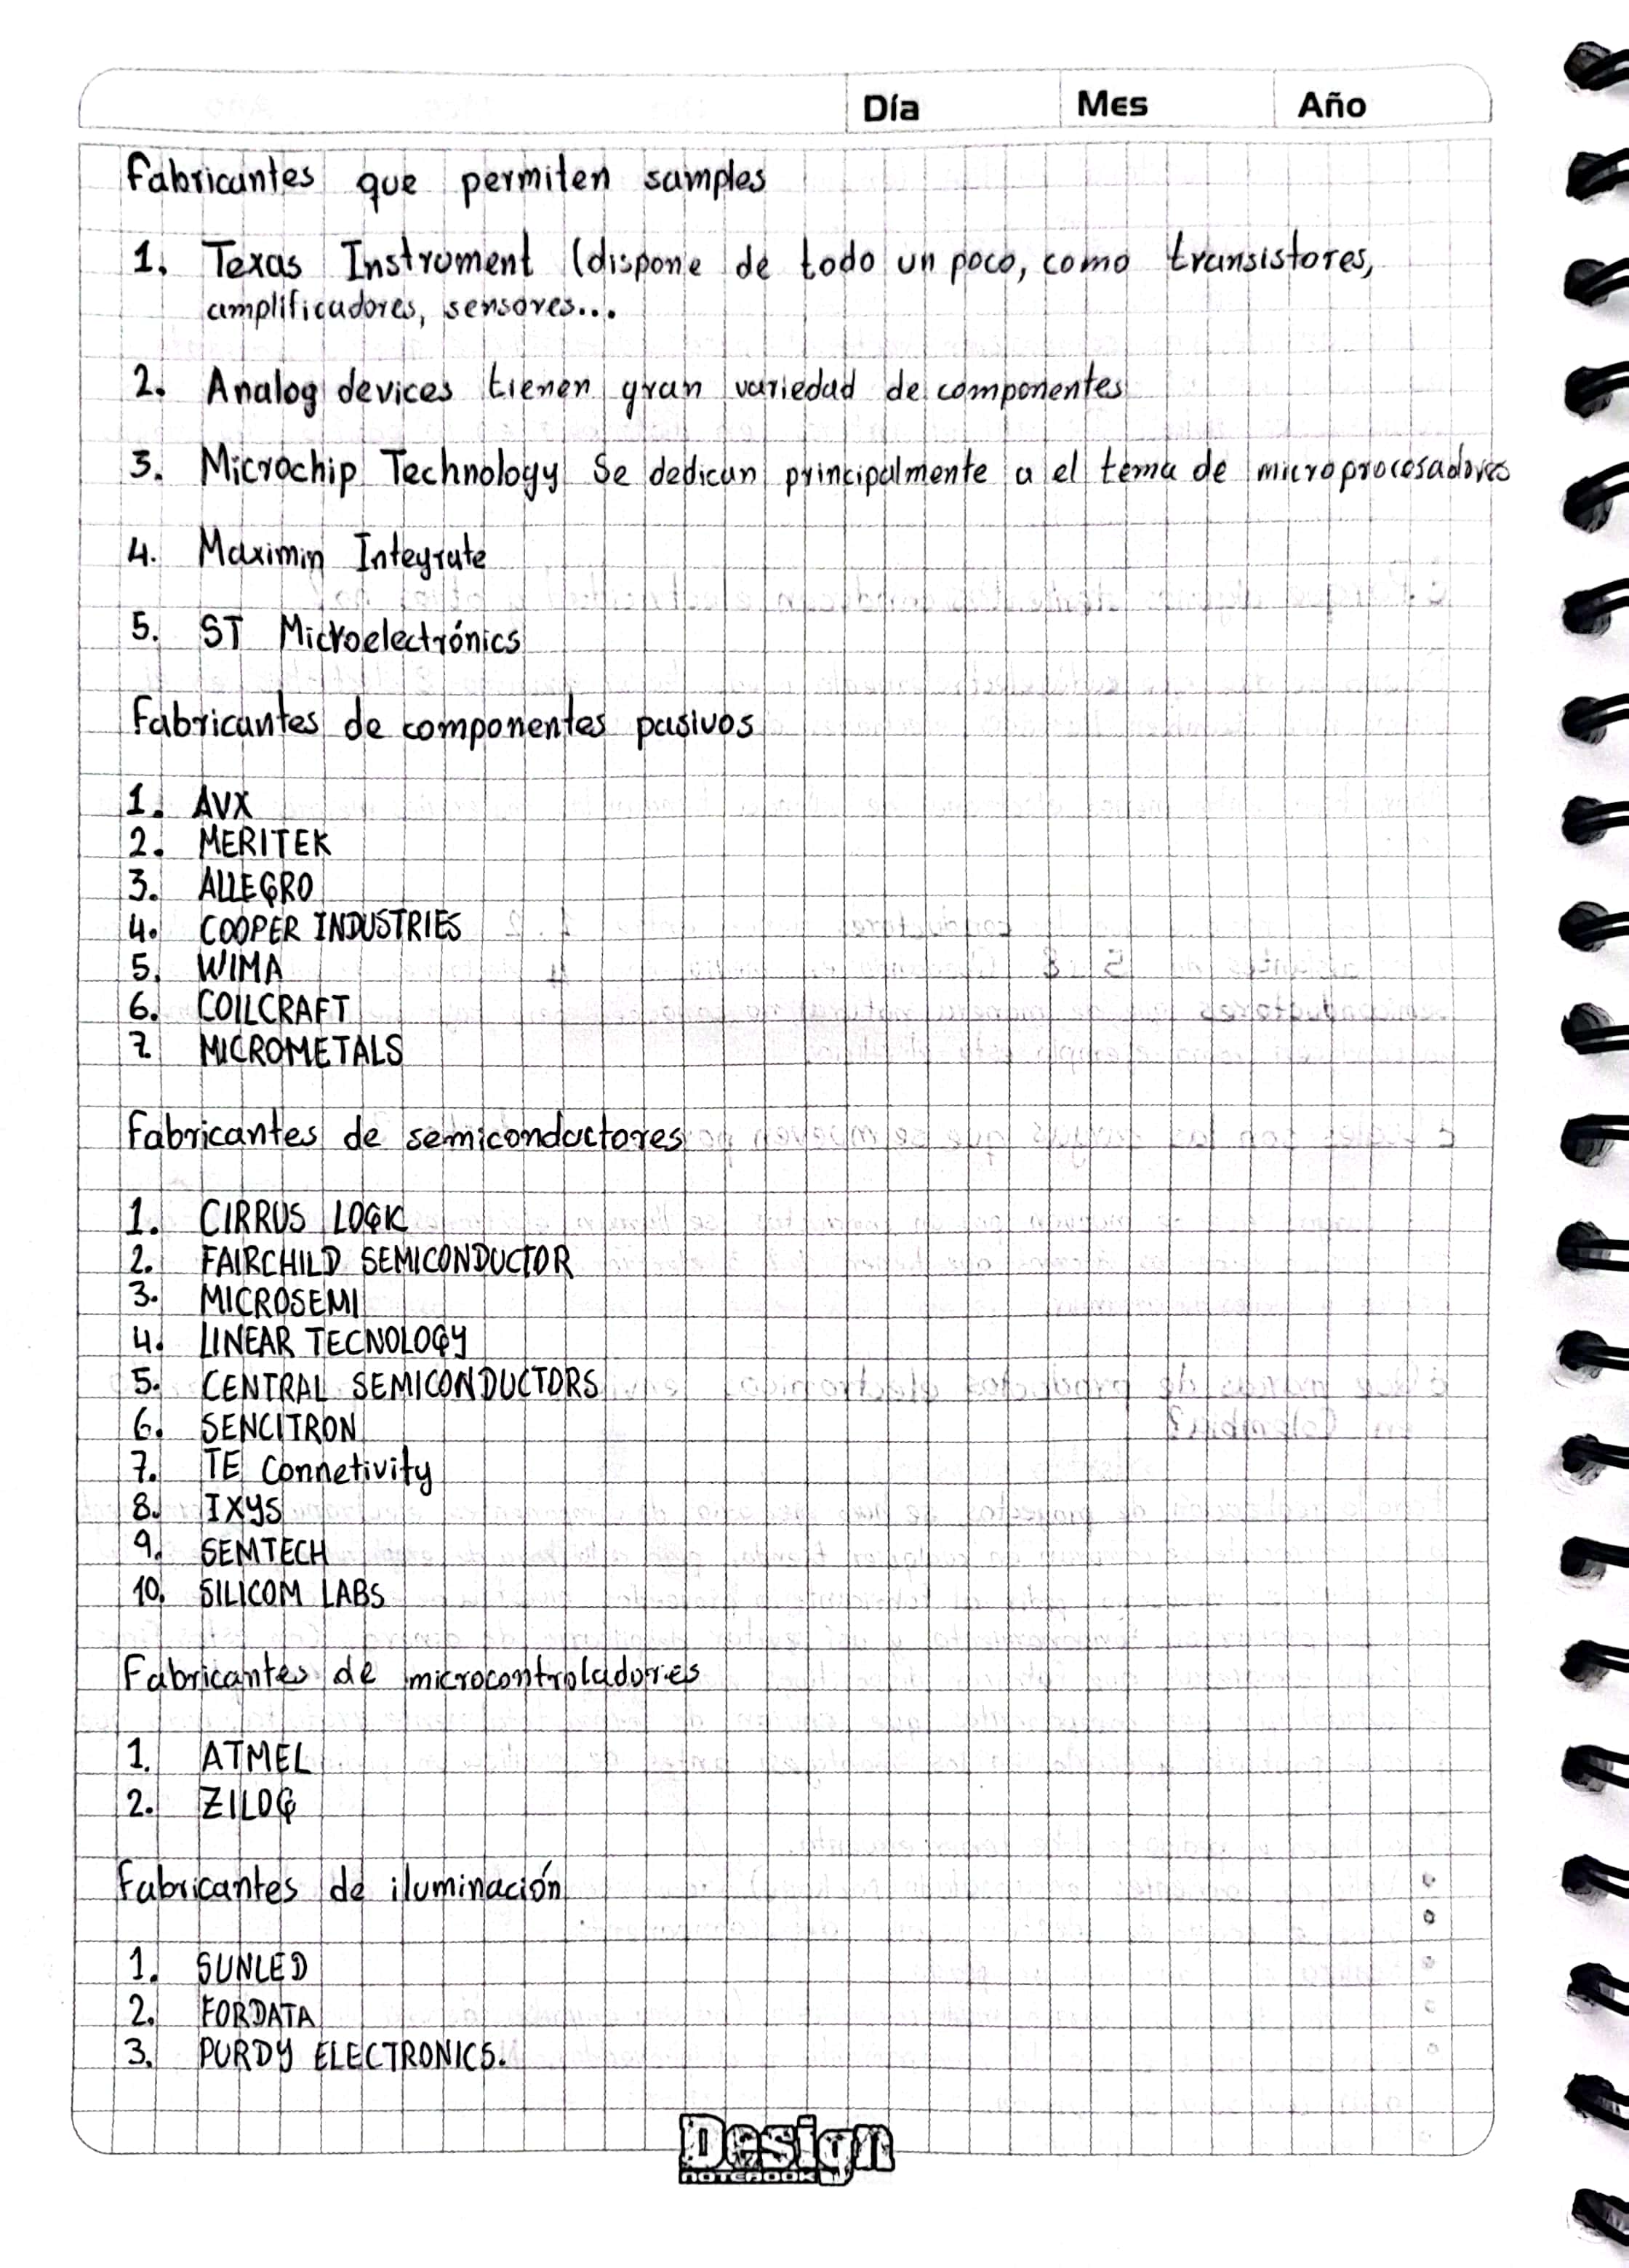 Día Mes Año
Fabricantes que permiten samples
1. Texas Instrument (dispone de todo un poco, como transistores,
amplificadores, sensores...
2. Analog devices tienen gran variedad de componentes
3. Microchip Technology Se dedican principalmente a el tema de microprocesadores
4. Maximin Integrate
5. ST Microelectrónics
Fabricantes de componentes pasivos
1. AVX
2. MERITEK
3. ALLEGRO
4. COOPER INDUSTRIES
5. WIMA
6. COILCRAFT
7 MICROMETALS
Fabricantes de semiconductores
1. CIRRUS LOGIC
2. FAIRCHILD SEMICONDUCTOR
3. MICROSEMI
4. LINEAR TECNOLOGY
5. CENTRAL SEMICONDUCTORS
6. SENCITRON
7. TE Connetivity
8. IXYS
9. SEMTECH
10. SILICOM LABS
Fabricantes de microcontroladores
1. ATMEL
2. ZILOG
Fabricantes de iluminación
1. SUNLED
2. FORDATA
3. PURDY ELECTRONICS.
Design
NOTEBOOK